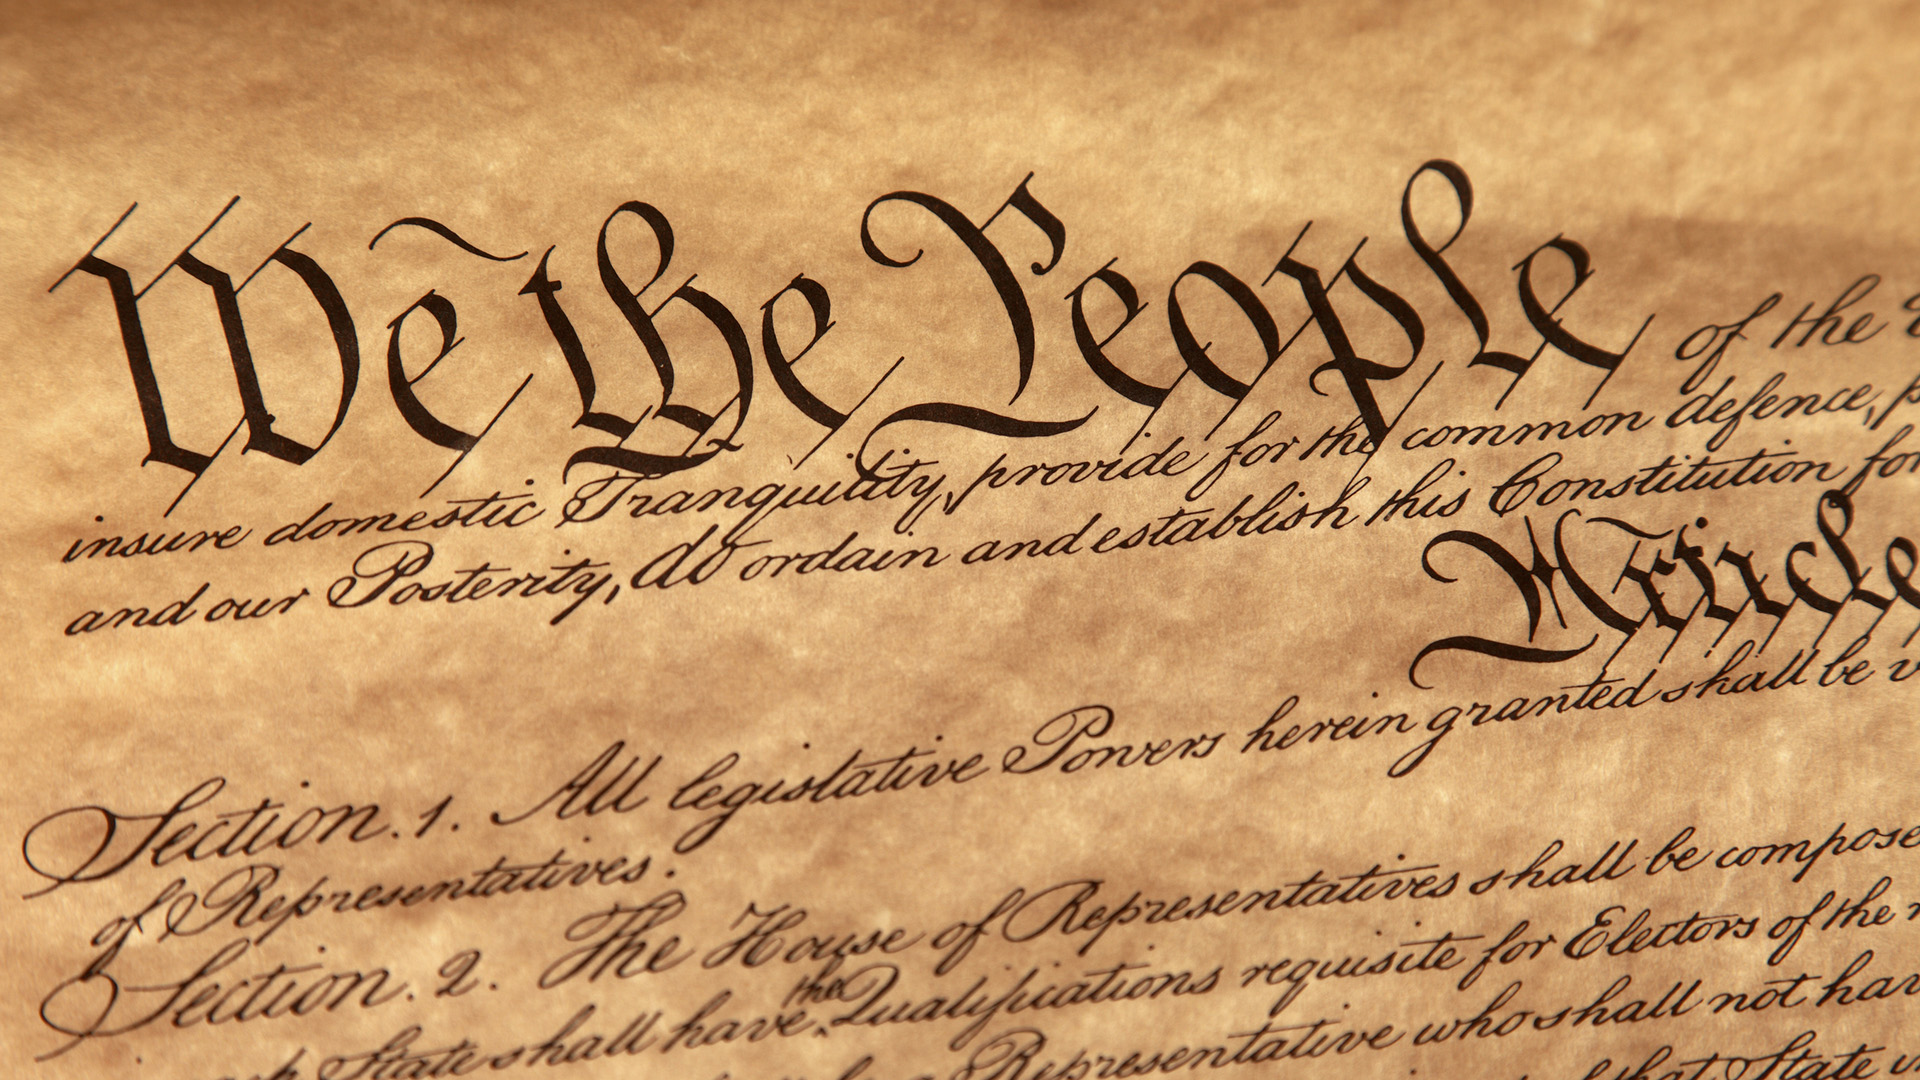 We the People of the
insure domestic Tranquility, provide for the common defence,
and our Posterity, do ordain and establish this Constitution for
Article
Section. 1. All legislative Powers herein granted shall be
of Representatives.
Section. 2. The House of Representatives shall be compose
the
State shall have Qualifications requisite for Electors of the
Representative who shall not
that State